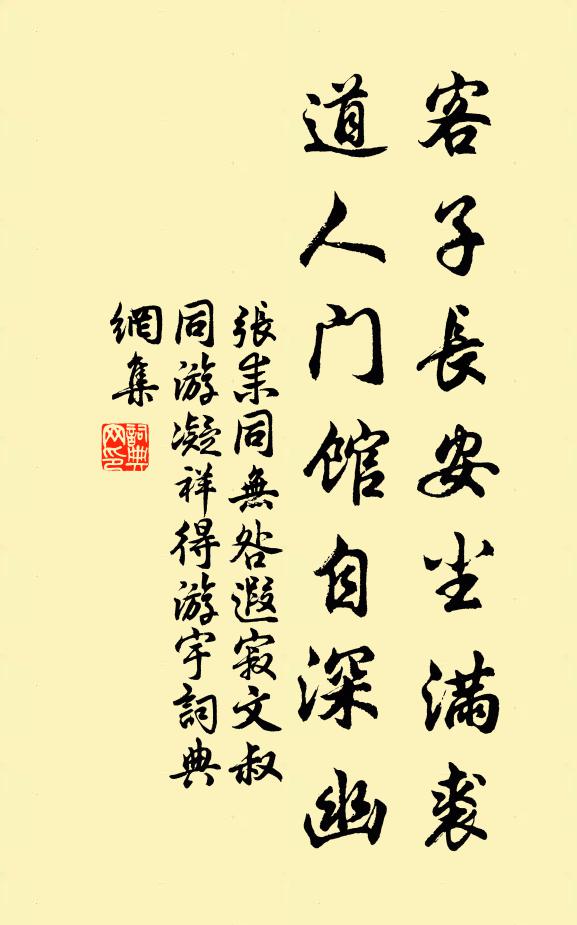 客子長安尘滿裘
道人門館自深幽
張耒同無咎遐寂文叔
同游凝祥得游字詞典
網集
詞典
网印